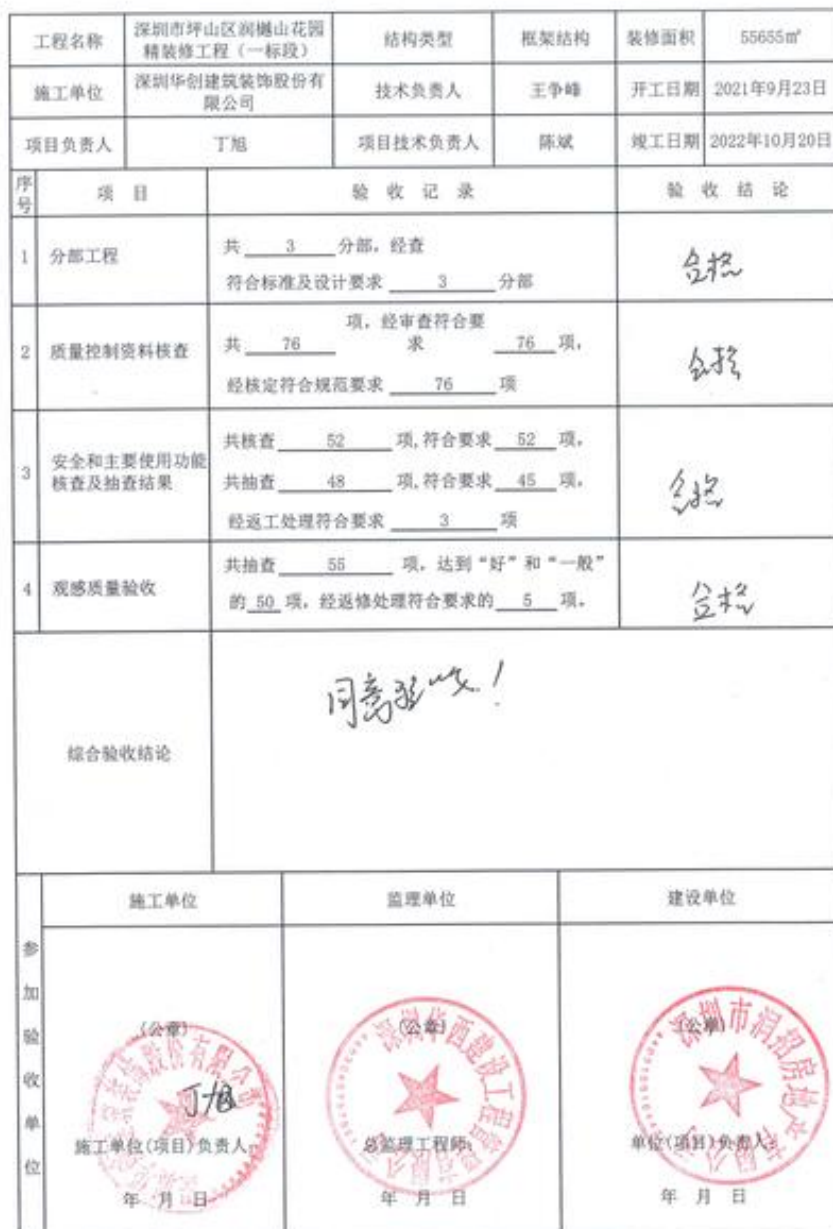 工程名称 深圳市坪山区润樾山花园精装修工程（一标段） 结构类型 框架结构 装修面积 55655㎡
施工单位 深圳华创建筑装饰股份有限公司 技术负责人 王争峰 开工日期 2021年9月23日
项目负责人 丁旭 项目技术负责人 陈斌 竣工日期 2022年10月20日
序号 项 目 验 收 记 录 验 收 结 论
1 分部工程
共 3 分部，经查
符合标准及设计要求 3 分部
合格
2 质量控制资料核查
共 76 项，经审查符合要求 76 项，
经核定符合规范要求 76 项
合格
3 安全和主要使用功能
核查及抽查结果
共核查 52 项,符合要求 52 项，
共抽查 48 项,符合要求 45 项，
经返工处理符合要求 3 项
合格
4 观感质量验收
共抽查 55 项，达到“好”和“一般”
的 50 项，经返修处理符合要求的 5 项。
合格
综合验收结论
同意验收！
参加验收单位
施工单位 监理单位 建设单位
(公章) (公章) (公章)
深圳华西建设工程管理有限公司
丁旭
施工单位(项目)负责人： 总监理工程师： 单位(项目)负责人：
年 月 日 年 月 日 年 月 日